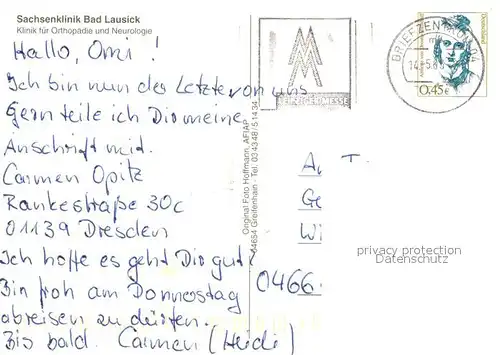 Sachsenklinik Bad Lausick
Klinik für Orthopädie und Neurologie
Hallo, Omi!
Ich bin nun des Letzte von uns.
Gern teile ich Dir meine
Anschrift mit.
Carmen Opitz
Rankestraße 30c
01139 Dresden
Ich hoffe es geht Dir gut?
Bin froh am Donnerstag
abreisen zu dürfen.
Bis bald. Carmen (Heidi)
Original Foto Hoffmann, AFIAP
04654 Greifenhain - Tel. 034348/51434
LEIPZIGER MESSE
BRIEFZENTRUM 04
Deutschland
0,45€
A T.
Ge
Wi
0466
privacy protection
Datenschutz